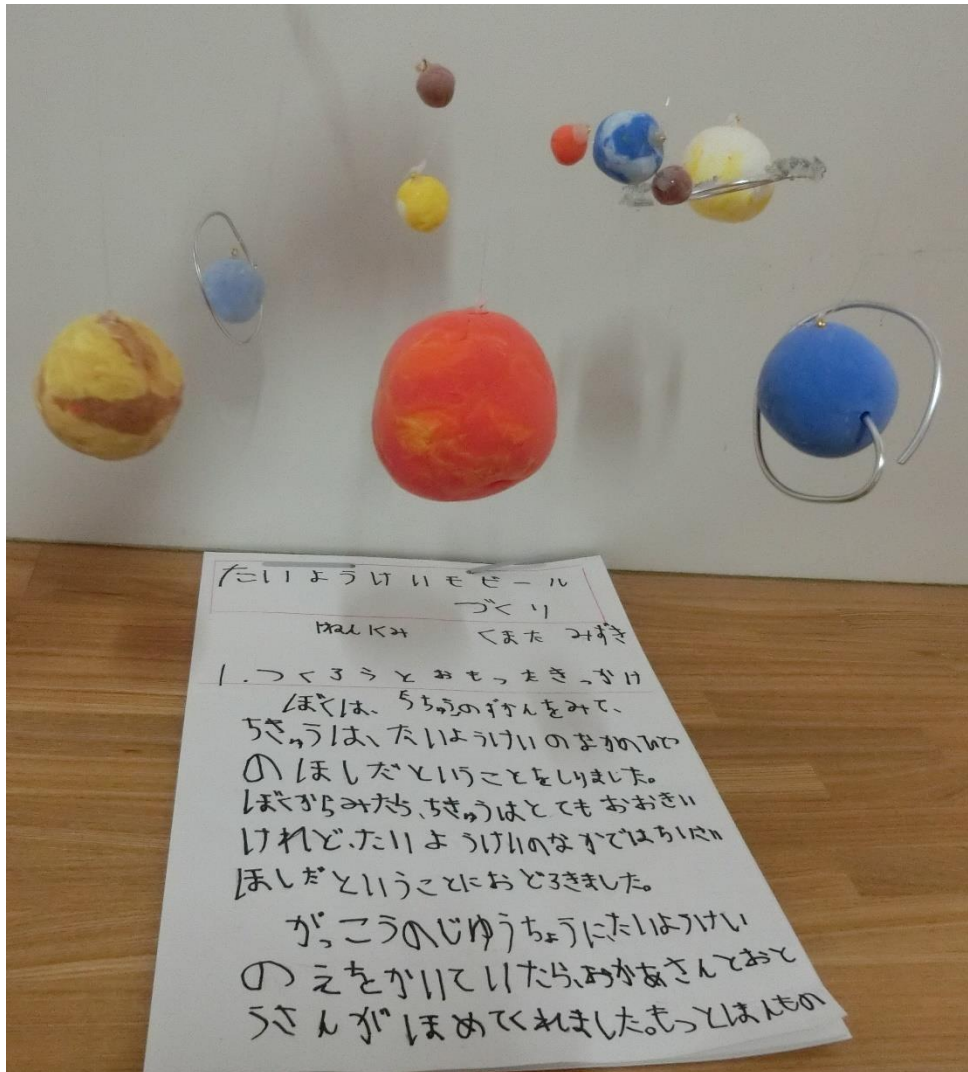 たいようけいモビール
づくり
1ねん1くみ くまた みずき
1.つくろうとおもったきっかけ
ぼくは、うちゅうのずかんをみて、
ちきゅうは、たいようけいのなかのひとつ
のほしだということをしりました。
ぼくからみたら、ちきゅうはとてもおおきい
けれど、たいようけいのなかではちいさい
ほしだということにおどろきました。
がっこうのじゆうちょうに、たいようけい
のえをかいていたら、おかあさんとおと
うさんがほめてくれました。もっとほんもの